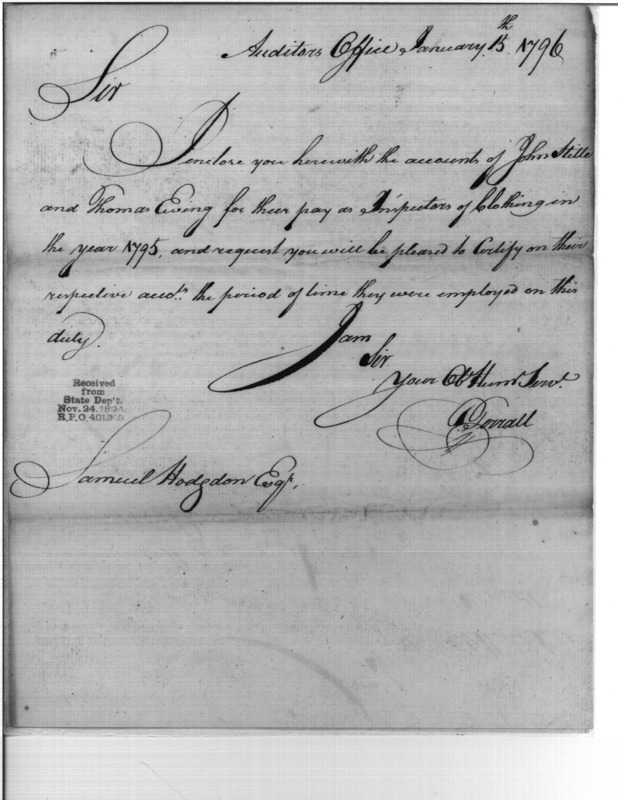 Auditors Office January 15th 1796
Sir
I enclose you herewith the accounts of John Stille
and Thomas Ewing for their pay as Inspectors of Clothing in
the year 1795, and request you will be pleased to Certify on their
respective accots. the period of time they were employed on this
duty.
I am
Sir
Your Obt Humb Servt.
Received
from
State Dep't.
Nov. 24, 1894
R.P.O.
Samuel Hodgdon Esqr.